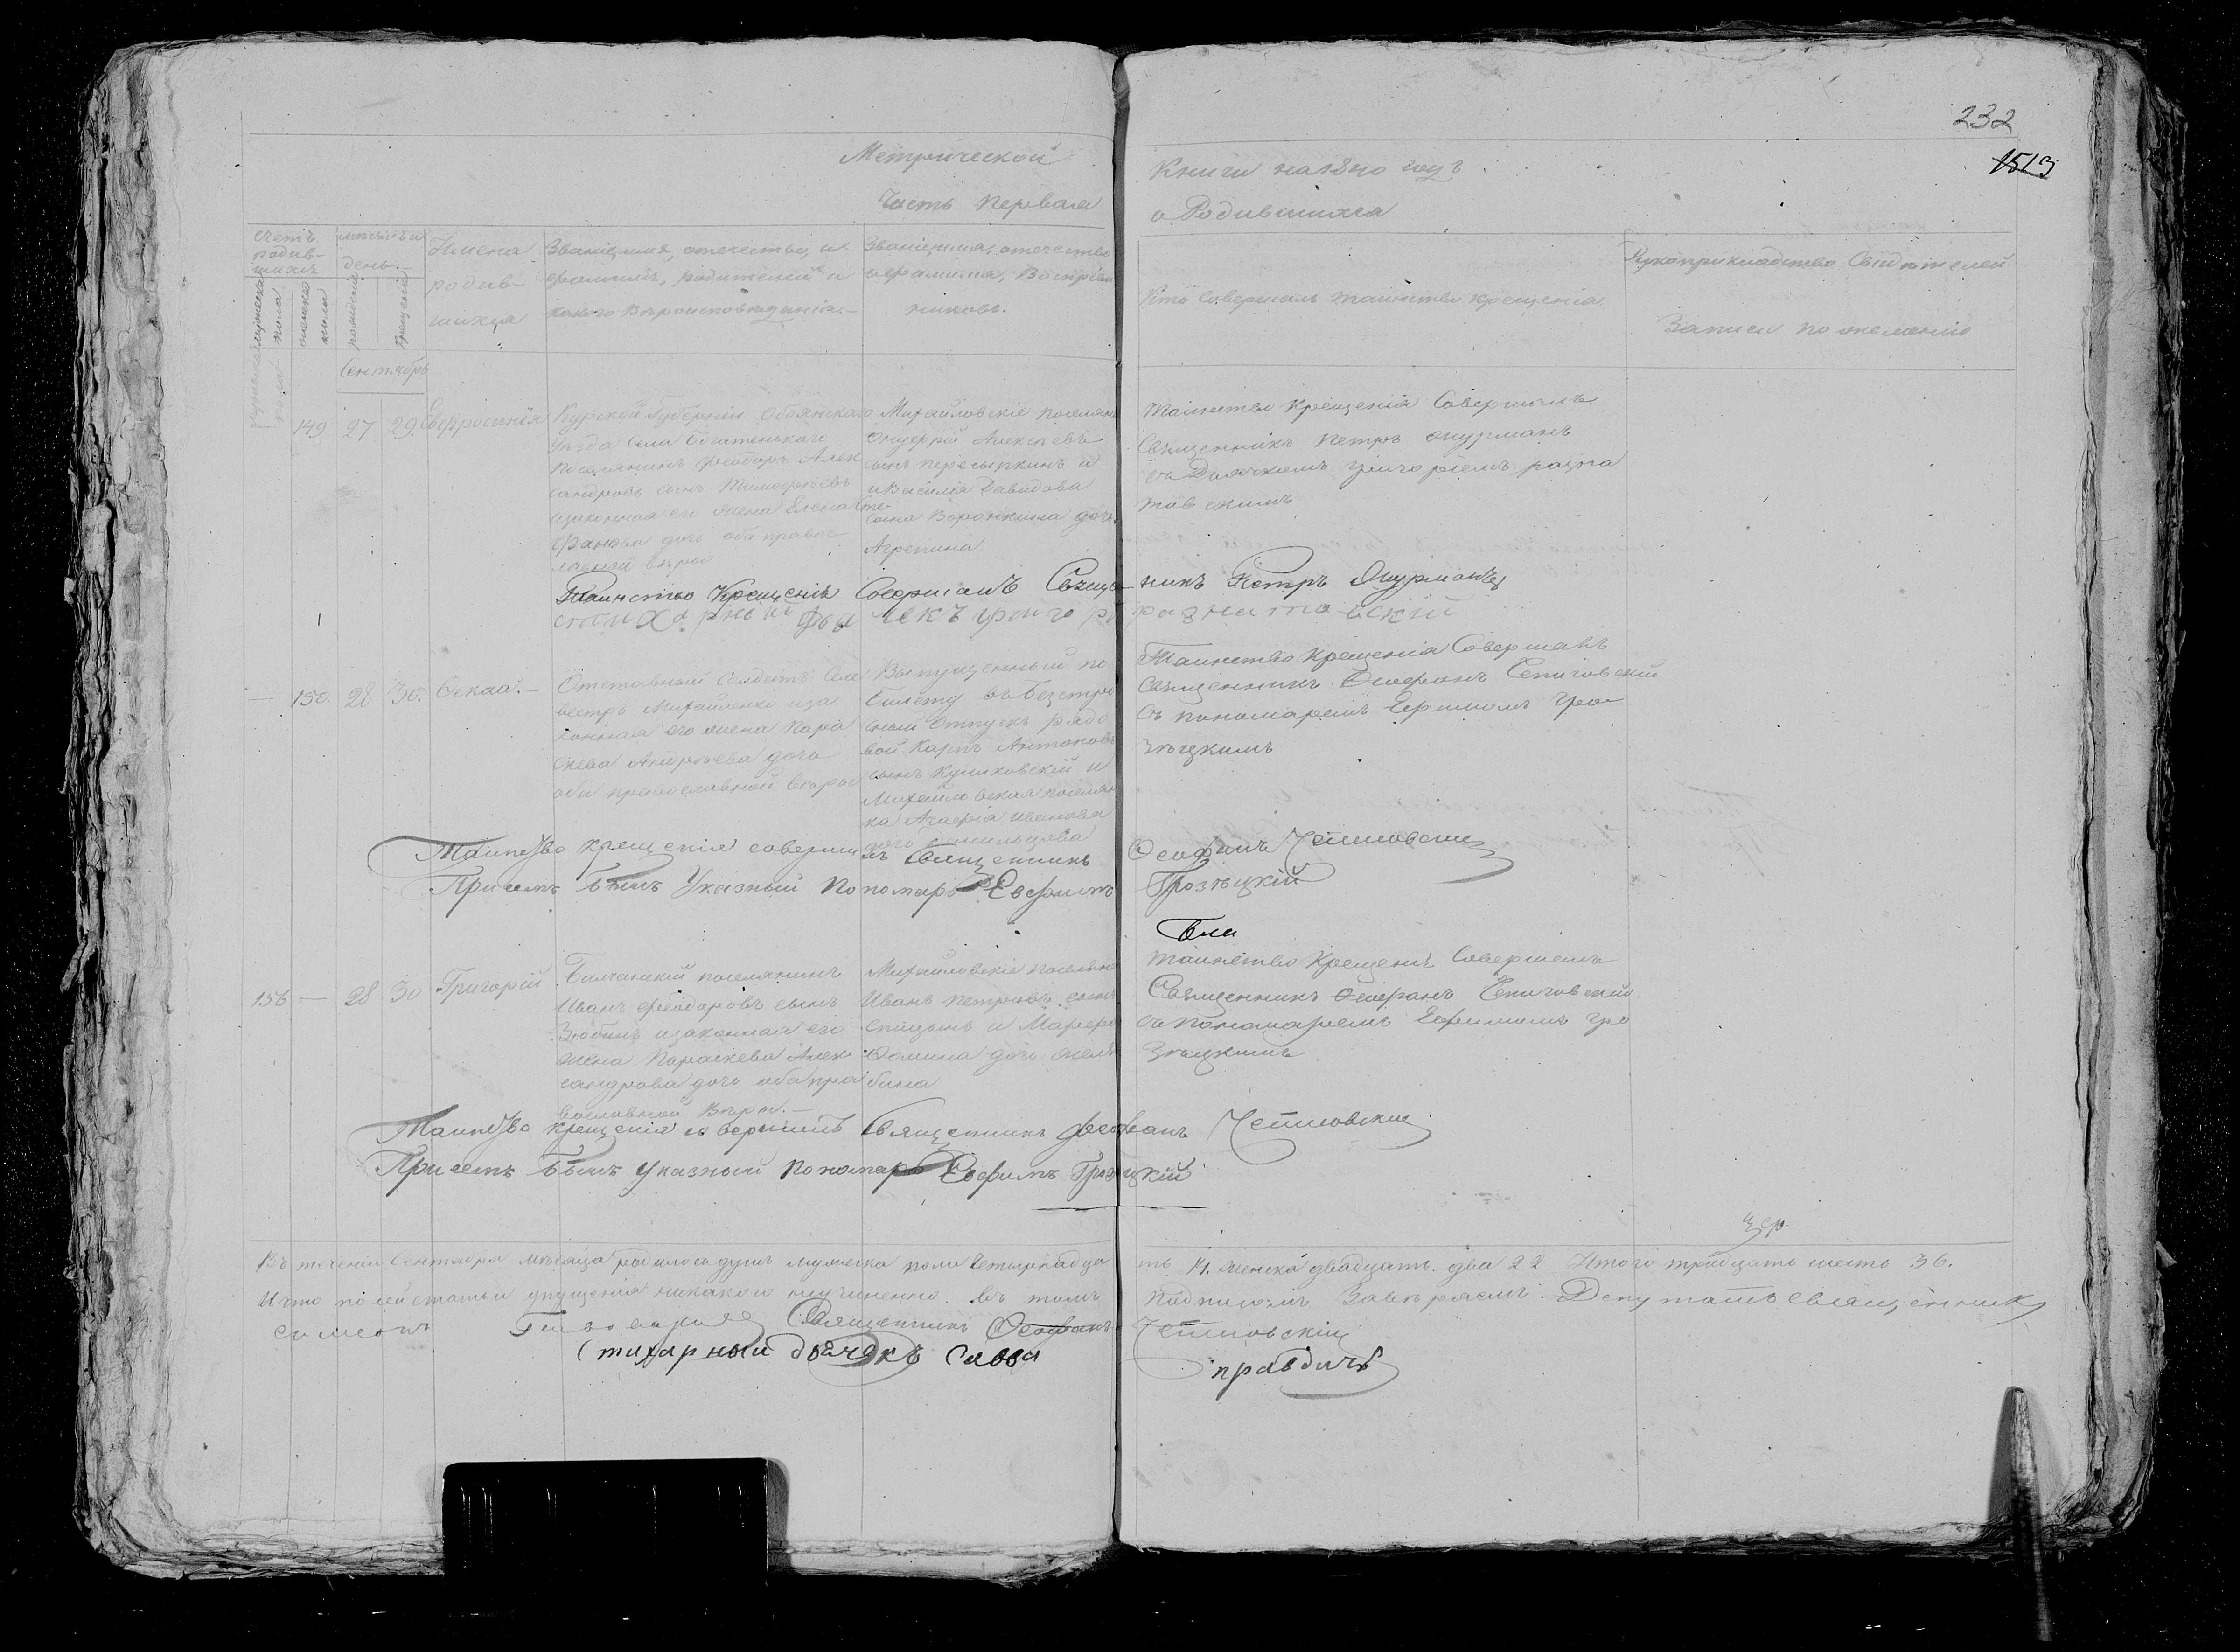 232
1513
Метрической
Книги на 1840 годъ
Часть первая
о Родившихся
Счетъ родив-
шихся
мужеска пола
женска пола
мѣсяцъ и
день.
рожденія
крещенія
Имена
родив-
шихся
Званіе, имя, отечество, и
фамилія, родителей и
какого вѣроисповѣданія.
Званіе, имя, отечество
и фамилія, Воспріем
никовъ.
Кто Совершалъ таинство крещенія
Рукоприкладство Свидѣтелей
Записи по желанію
Сентябрь
149 27 29. Евфросинія
Курской Губерніи Обоянскаго
уѣзда Села Богатенькаго
поселянинъ Феодоръ Алек
сандровъ сынъ Тимофеевъ
изаконная его жена Елена Сте
фанова дочь оба правос
лавной вѣры
Михайловскіе поселяне
Онуфрій Алексѣевъ
сынъ пересыпкинъ и
и Василія Давидова
сына Воронкина дочь
Агрепина
Таинство Крещенія Совершилъ
Священникъ Петръ
съ Дьячкомъ григоріемъ разна
товскимъ
Таинство Крещенія Совершалъ Священникъ Петръ
стихарный Дьячекъ григорій разнатовскій
— 150 28 30. Фекла. —
Отставный Солдатъ Селе
вестръ Михайленко иза
конная его жена Пара
скева Андрѣева дочь
оба православной вѣры
Выпущенный по
билету въ безсро
чный Отпускъ рядо
вой Карпъ Антоновъ
сынъ Куликовскій и
Михайловская поселян
ка Агафія Иванова
дочь Данильцова
Таинство Крещенія Совершалъ
Священникъ Феофанъ Чепиговскій
съ пономаремъ Ефимомъ Гро
зѣцкимъ
Таинство крещенія совершилъ Священникъ Феофанъ Чепиговскій
При семъ былъ Указный Пономарь Евфимъ Грозѣцкій
156 — 28 30 Григорій
поселянинъ
Иванъ феодоровъ сынъ
Зюбинъ изаконная его
жена Параскева Алек
сандрова дочь оба пра
вославной Вѣры. —
Михайловскіе поселяне
Иванъ петровъ сынъ
Спицынъ и Марфа
Фомина дочь желя
бина
Таинство Крещенія Совершалъ
Священникъ Феофанъ Чепиговскій
съ Пономаремъ Ефимомъ Гро
зѣцкимъ
Таинство крещенія совершилъ Священникъ Феофанъ Чепиговскій
При семъ былъ Указный Пономарь Евфимъ Грозѣцкій
Въ теченіи Сентября мѣсяца родилось душъ мужеска пола Четырнадца
ть 14. женска двадцать два 22 Итого тридцать шесть 36.
И что по сей статьи упущенія никакого неучиненно въ томъ
подписомъ Завѣряемъ. Депутатъ священникъ
Симеонъ
Священникъ Феофанъ Чепиговскій
Стихарный дьячекъ Савва правдичъ